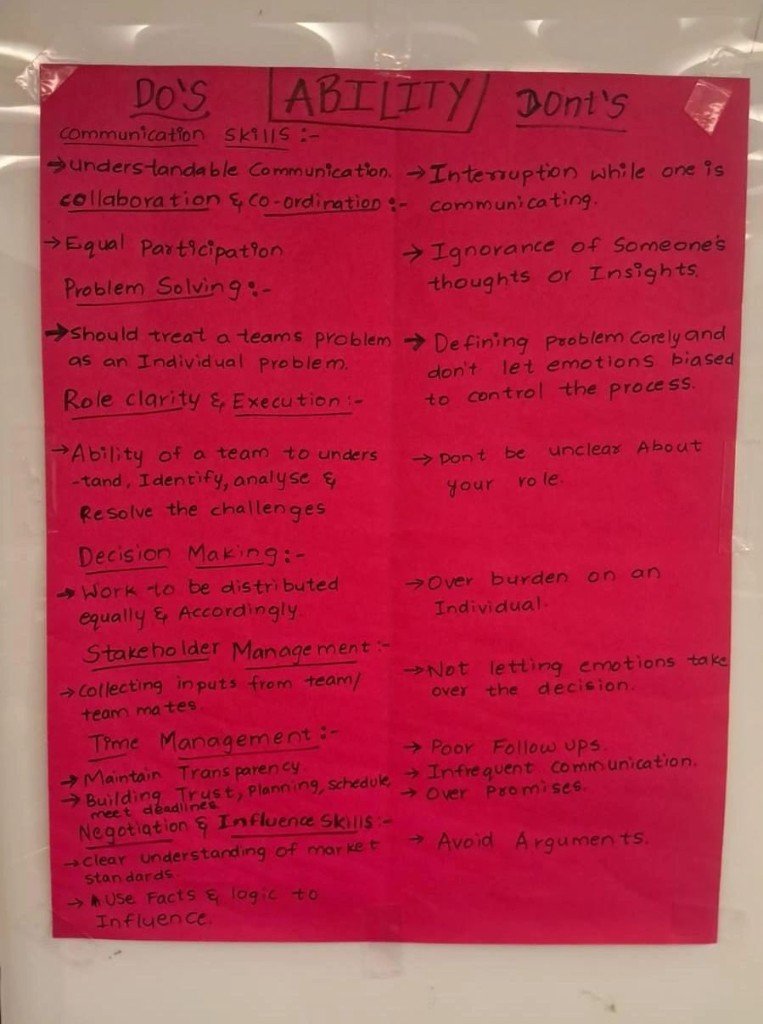 DO'S ABILITY Dont's
Communication Skills :-
→ Understandable Communication.
→ Interruption while one is
communicating.
collaboration & Co-ordination :-
→ Equal Participation
→ Ignorance of Someone's
thoughts or Insights.
Problem Solving :-
→ Should treat a teams problem
as an Individual problem.
→ Defining problem Corely and
don't let emotions biased
to control the process.
Role clarity & Execution :-
→ Ability of a team to unders
-tand, Identify, analyse &
Resolve the challenges
→ Dont be unclear About
your role.
Decision Making :-
→ Work to be distributed
equally & Accordingly.
→ Over burden on an
Individual.
Stakeholder Management :-
→ Collecting inputs from team/
team mates.
→ Not letting emotions take
over the decision.
Time Management :-
→ Maintain Transparency
→ Building Trust, Planning, Schedule,
meet deadlines
→ Poor Follow ups.
→ Infrequent communication.
→ Over Promises.
Negotiation & Influence Skills :-
→ Clear understanding of market
standards.
→ Use Facts & logic to
Influence.
→ Avoid Arguments.